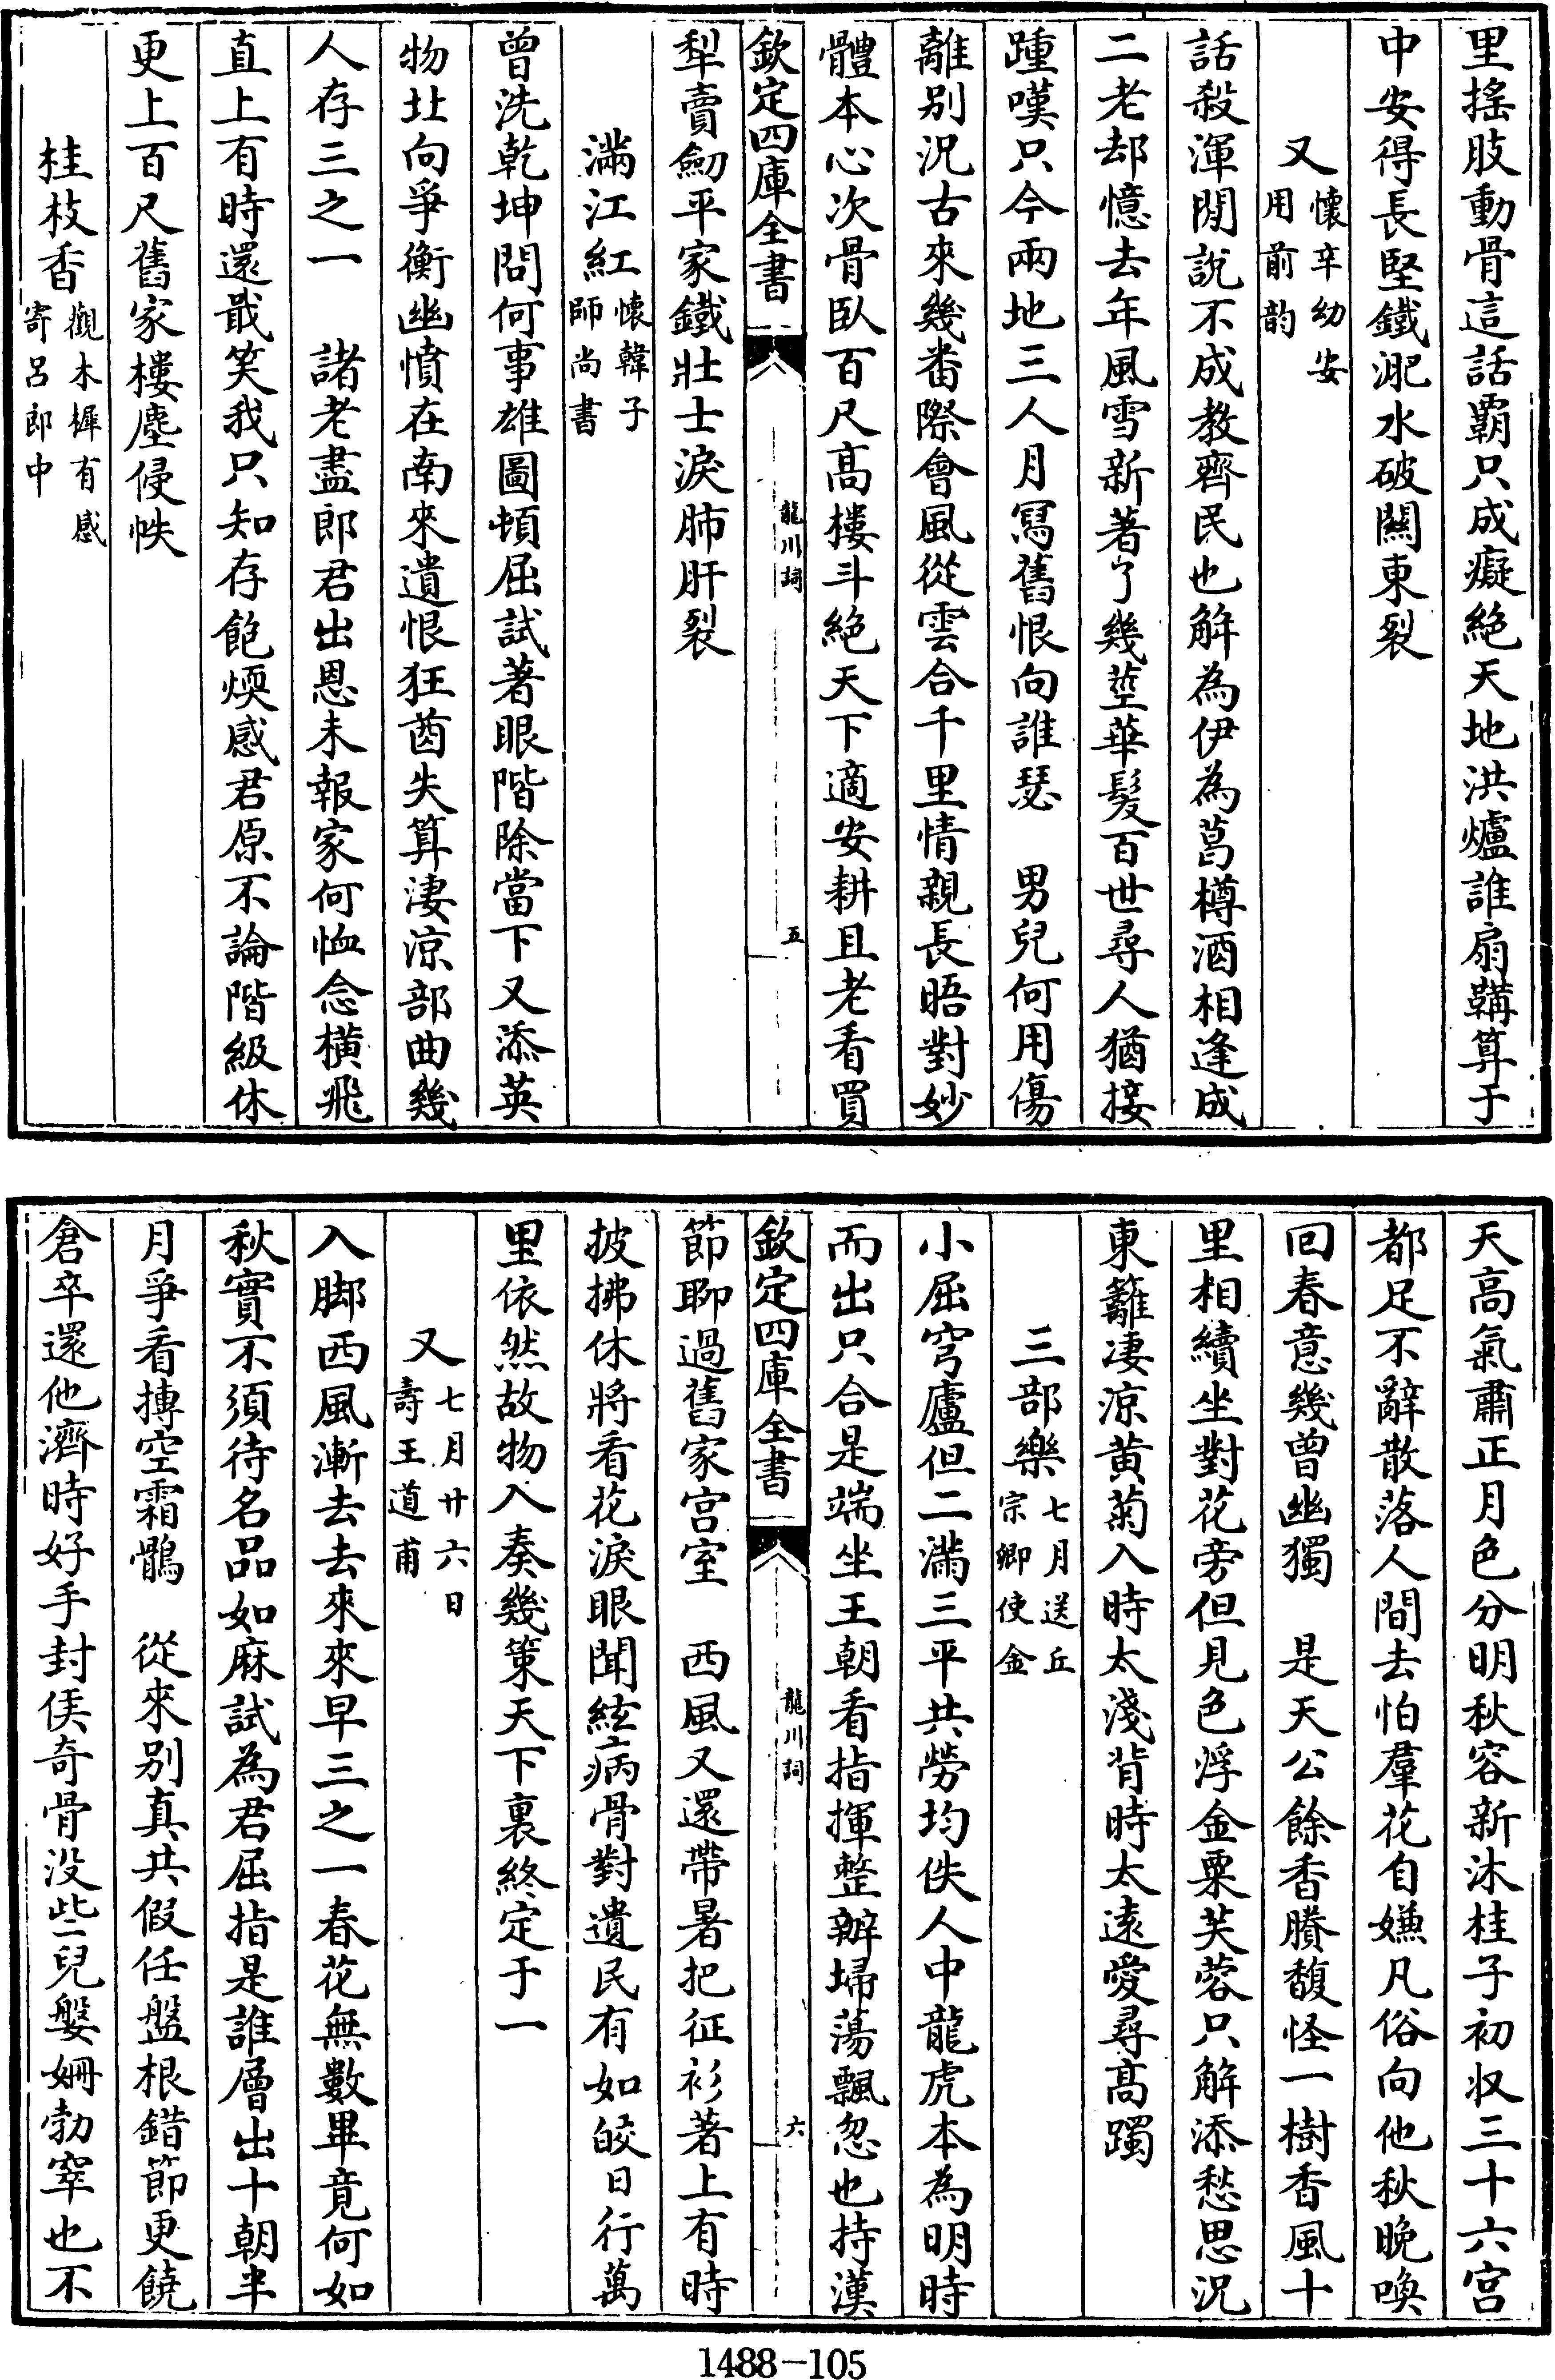 里搖肢動骨這話霸只成癡絶天地洪爐誰扇鞲算于
中安得長堅鐵淝水破關東裂
又懷辛幼安
用前韵
話殺渾閒說不成教齊民也解為伊為葛樽酒相逢成
二老却憶去年風雪新著了幾莖華髮百世尋人猶接
踵嘆只今兩地三人月冩舊恨向誰瑟　男兒何用傷
離别况古來幾畨際會風從雲合千里情親長晤對妙
體本心次骨臥百尺髙樓斗絶天下適安耕且老看買
欽定四庫全書
龍川詞
五
犁賣劒平家鐵壯士淚肺肝裂
滿江紅懷韓子
師尚書
曾洗乾坤問何事雄圖頓屈試著眼階除當下又添英
物北向爭衡幽憤在南來遺恨狂酋失算淒涼部曲幾
人存三之一　諸老盡郎君出恩未報家何恤念橫飛
直上有時還戢笑我只知存飽煖感君原不論階級休
更上百尺舊家樓塵侵帙
桂枝香觀木樨有感
寄呂郎中
天高氣肅正月色分明秋容新沐桂子初収三十六宫
都足不辭散落人間去怕羣花自嫌凡俗向他秋晩喚
回春意幾曾幽獨　是天公餘香賸馥怪一樹香風十
里相續坐對花旁但見色浮金粟芙蓉只解添愁思况
東籬凄涼黄菊入時太淺背時太逺愛尋髙躅
三部樂七月送丘
宗卿使金
小屈穹廬但二滿三平共勞均佚人中龍虎本為明時
而出只合是端坐王朝看指揮整辦埽蕩飄忽也持漢
欽定四庫全書
龍川詞
六
節聊過舊家宫室　西風又還帶暑把征衫著上有時
披拂休將看花淚眼聞絃病骨對遺民有如皎日行萬
里依然故物入奏幾策天下裏終定于一
又七月廿六日
壽王道甫
入脚西風漸去去來來早三之一春花無數畢竟何如
秋實不須待名品如麻試為君屈指是誰層出十朝半
月爭看摶空霜鶻　從來别真共假任盤根錯節更饒
倉卒還他濟時好手封侯奇骨没些兒媻姍勃窣也不
1488-105